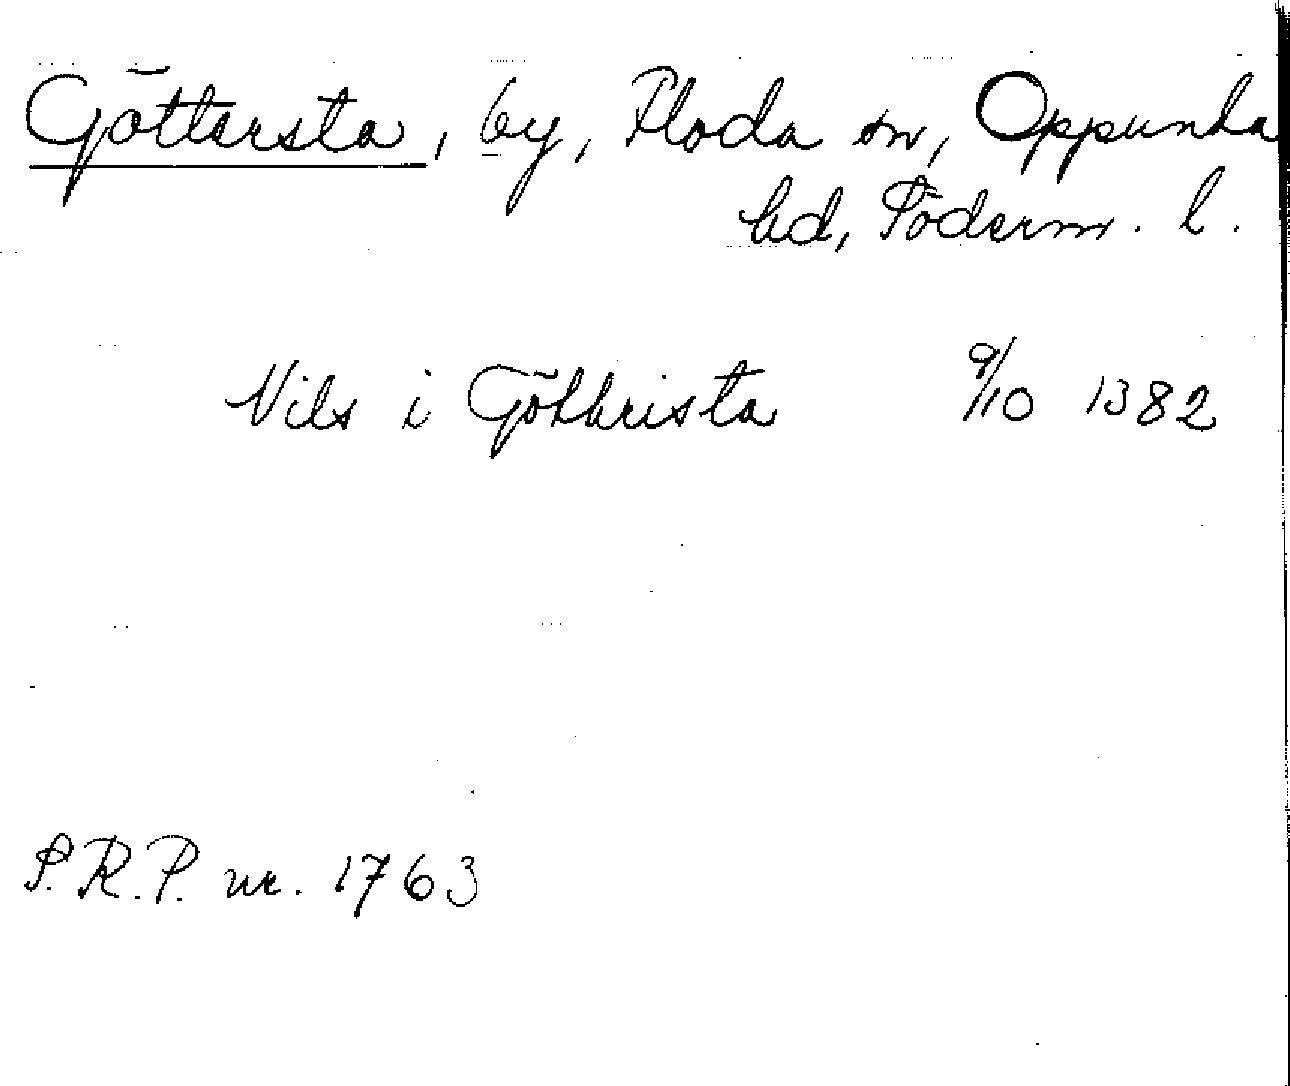 Göttersta, by, Floda sn, Oppunda
hd, Söderm. l.
Nils i Göthrista 9/10 1382
S.R.P. nr. 1763